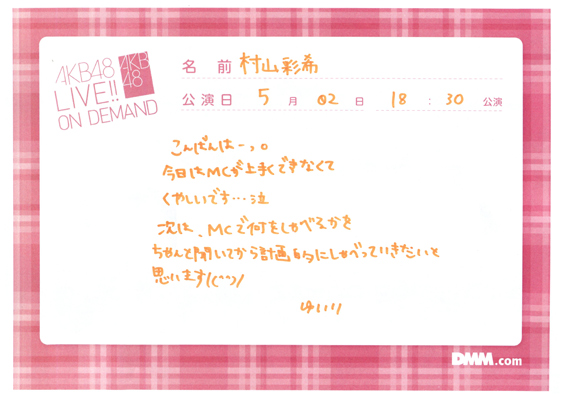 AKB48
LIVE!!
ON DEMAND
AKB
48
名前 村山彩希
公演日 5月02日 18:30公演
こんばんはーっ。
今日はMCが上手くできなくて
くやしいです…泣
次は、MCで何をしゃべるかを
ちゃんと聞いてから計画的にしゃべっていきたいと
思います!(^^)/
ゆいり
DMM.com